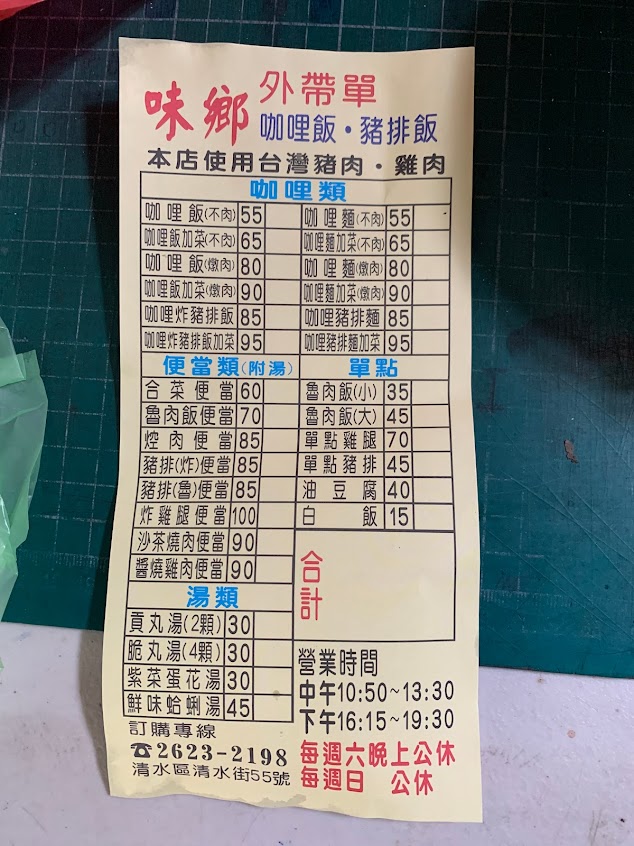 味鄉
外帶單
咖哩飯・豬排飯
本店使用台灣豬肉・雞肉
咖哩類
咖哩飯(不肉) 55 咖哩麵(不肉) 55
咖哩飯加菜(不肉) 65 咖哩麵加菜(不肉) 65
咖哩飯(燉肉) 80 咖哩麵(燉肉) 80
咖哩飯加菜(燉肉) 90 咖哩麵加菜(燉肉) 90
咖哩炸豬排飯 85 咖哩豬排麵 85
咖哩炸豬排飯加菜 95 咖哩豬排麵加菜 95
便當類(附湯)
合菜便當 60
魯肉飯便當 70
焢肉便當 85
豬排(炸)便當 85
豬排(魯)便當 85
炸雞腿便當 100
沙茶燒肉便當 90
醬燒雞肉便當 90
單點
魯肉飯(小) 35
魯肉飯(大) 45
單點雞腿 70
單點豬排 45
油豆腐 40
白飯 15
合計
湯類
貢丸湯(2顆) 30
脆丸湯(4顆) 30
紫菜蛋花湯 30
鮮味蛤蜊湯 45
訂購專線
☎2623-2198
清水區清水街55號
營業時間
中午10:50~13:30
下午16:15~19:30
每週六晚上公休
每週日 公休